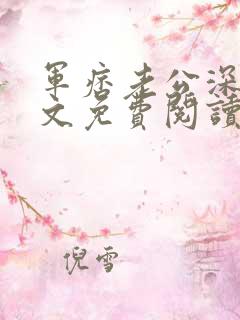 軍痞老公深
文免費閱讀
倪雪